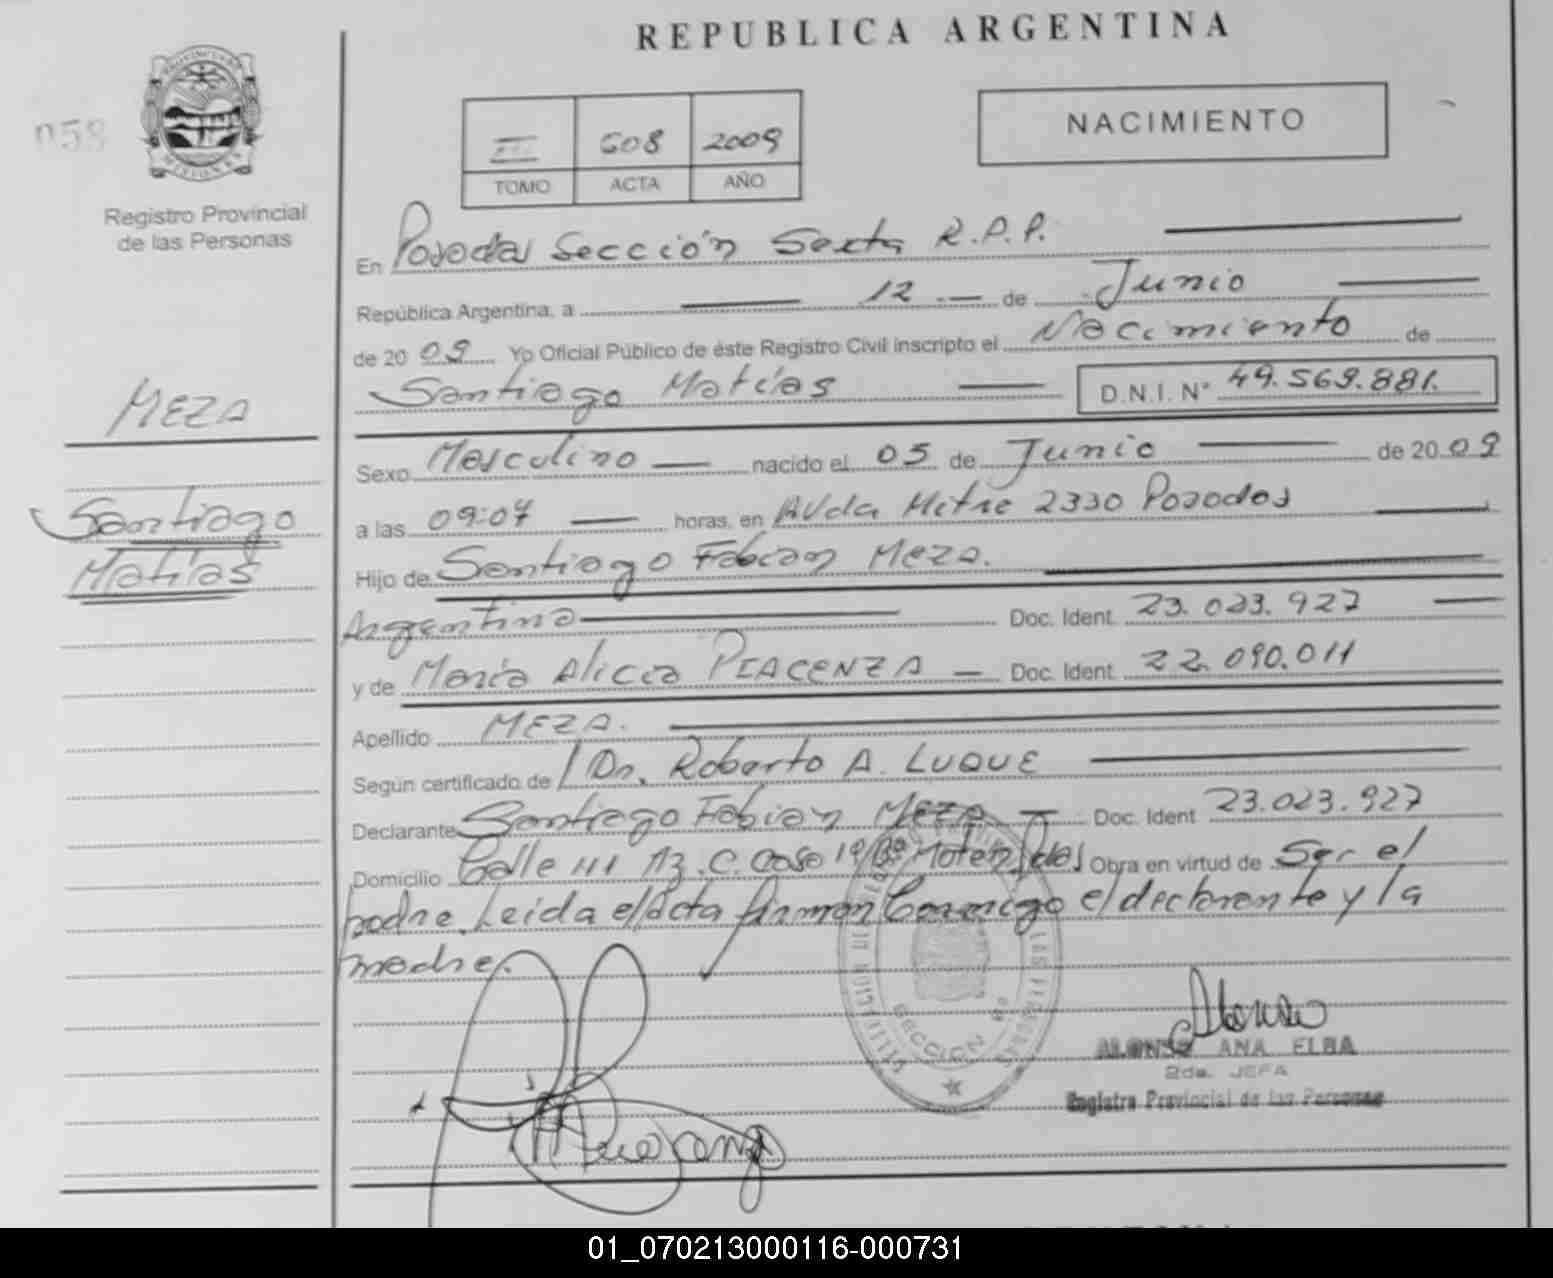 REPUBLICA ARGENTINA
058
III 608 2009
TOMO ACTA AÑO
NACIMIENTO
Registro Provincial
de las Personas
En Posadas Sección Sexta R.P.P.
República Argentina, a 12 de Junio
de 2009 Yo Oficial Público de éste Registro Civil inscripto el Nacimiento de
Santiago Matías D.N.I. N° 49.569.881.
MEZA
Sexo Masculino nacido el 05 de Junio de 2009
Santiago
a las 09:07 horas, en Avda Mitre 2330 Posadas
Matías
Hijo de Santiago Fabian MEZA.
Argentina Doc. Ident. 23.023.927
y de María Alicia PIACENZA Doc. Ident. 22.090.011
Apellido MEZA.
Según certificado de Dr. Roberto A. LUQUE
Declarante Santiago Fabian MEZA Doc. Ident 23.023.927
Domicilio Calle 111 Mz. C. Casa 19 Obra en virtud de Ser el
padre. Leida el Acta firman Conmigo el declarante y la
madre.
SECCION 6º
ALONSO ANA ELBA
2da. JEFA
Registro Provincial de las Personas
01_070213000116-000731